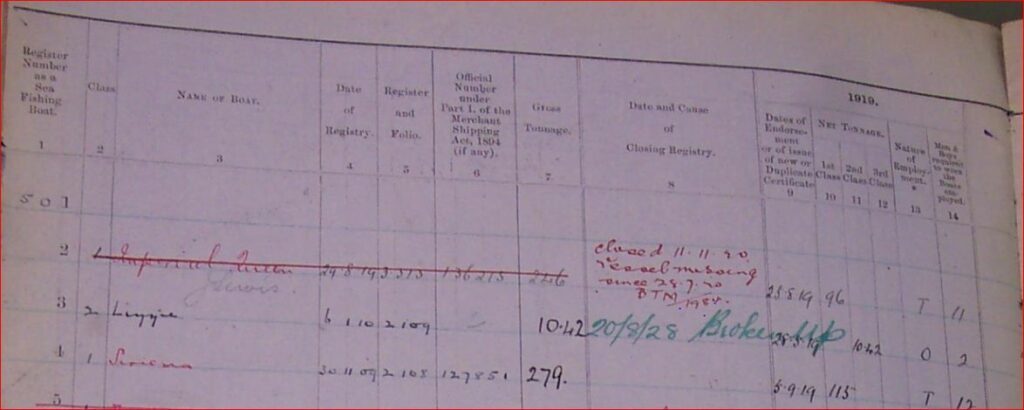 1919.
Register Number as a Sea Fishing Boat. Class NAME OF BOAT. Date of Registry. Register and Folio. Official Number under Part I. of the Merchant Shipping Act, 1894 (if any). Gross Tonnage. Date and Cause of Closing Registry. Dates of Endorsement or of issue of new or Duplicate Certificate NET TONNAGE. 1st Class 2nd Class 3rd Class Nature of Employment. * Men & Boys required to work the Boats employed.
1 2 3 4 5 6 7 8 9 10 11 12 13 14
501
closed 11.11.20
2 1 Imperial Queen 29 8 19 3 313 136213 246 vessel missing
since 28.7.20 25 8 19 96 T 11
BTM
3 2 Lizzie 6 1 10 2 109 10.42 20/8/28 Broken Up 10.42 O 2
4 1 30 11 09 2 108 127851 279. 5 9 19 115 T 12
5